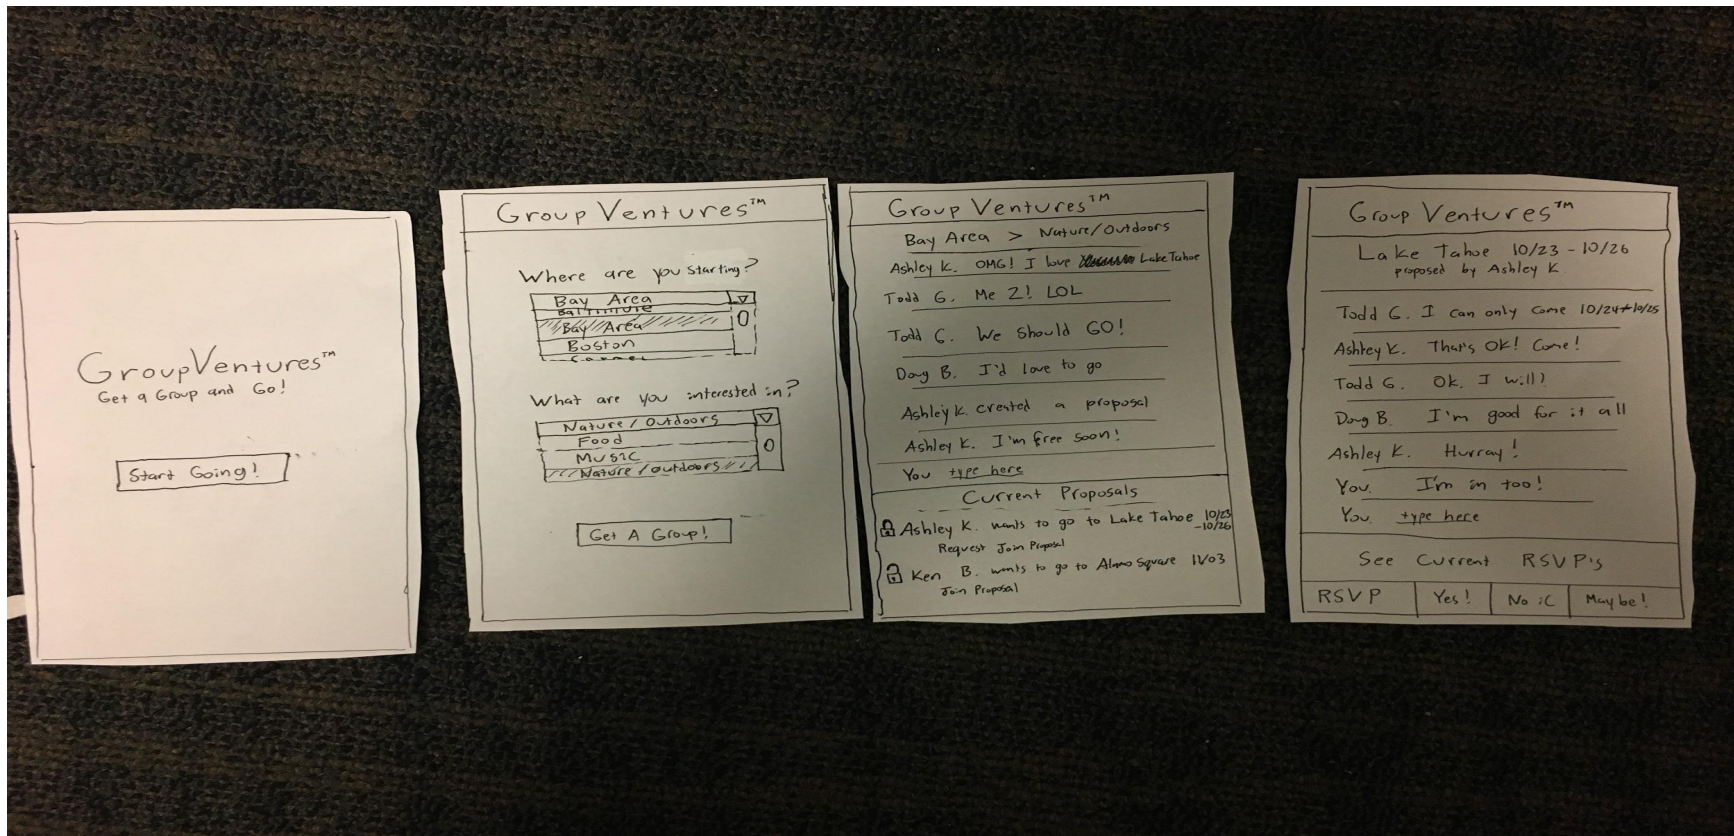 GroupVentures™
Get a Group and Go!
Start Going!
Group Ventures™
Where are you starting?
Bay Area
Baltimore
Bay Area
Boston
What are you interested in?
Nature / Outdoors
Food
Music
Nature / Outdoors
Get A Group!
Group Ventures™
Bay Area > Nature/Outdoors
Ashley K. OMG! I love Lake Tahoe
Todd G. Me 2! LOL
Todd G. We should GO!
Doug B. I'd love to go
Ashley K. created a proposal
Ashley K. I'm free soon!
You type here
Current Proposals
Ashley K. wants to go to Lake Tahoe 10/23
-10/26
Request Join Proposal
Ken B. wants to go to Alamo Square 11/03
Join Proposal
Group Ventures™
Lake Tahoe 10/23 - 10/26
proposed by Ashley K.
Todd G. I can only come 10/24+10/25
Ashley K. That's OK! Come!
Todd G. Ok. I will!
Doug B. I'm good for it all
Ashley K. Hurray!
You. I'm in too!
You type here
See Current RSVP's
RSVP Yes! No :C Maybe!